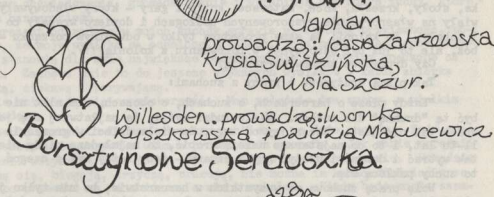 Clapham
prowadzą: Joasia Zakrzowska
Krysia Świdzińska,
Danusia Szczur.
Willesden. prowadzą: Iwonka
Ryszkowska i Dzidzia Makucewicz
Bursztynowe Serduszka